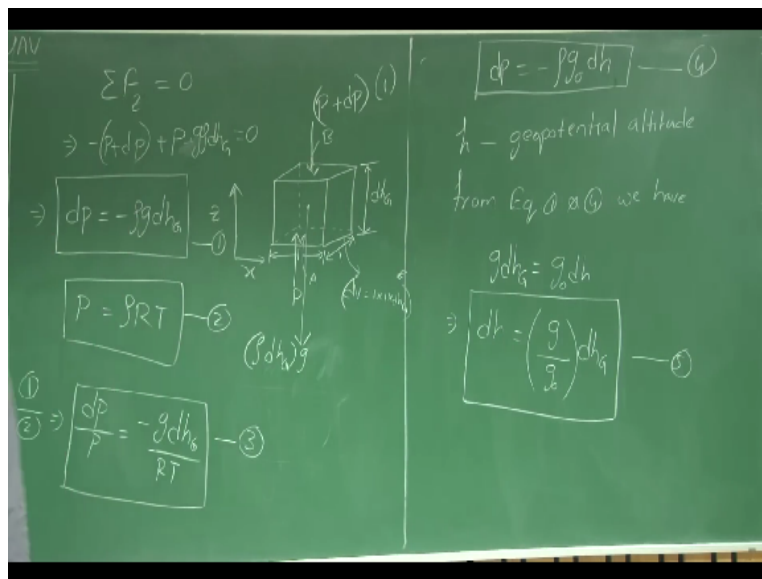 UAV
ΣF_z = 0
⇒ -(P+dP) + P - ρgdh_G = 0
⇒ dp = -ρgdh_G — ①
P = ρRT — ②
①/② ⇒ dP/P = -gdh_G/RT — ③
(P+dP)(1)
B
dh_G
z
x
P
A
1
1
(dV=1x1xdh_G)
(ρdh_G)g
dp = -ρg₀dh — ④
h - geopotential altitude
from Eq ① & ④ we have
gdh_G = g₀dh
⇒ dh = (g/g₀)dh_G — ⑤